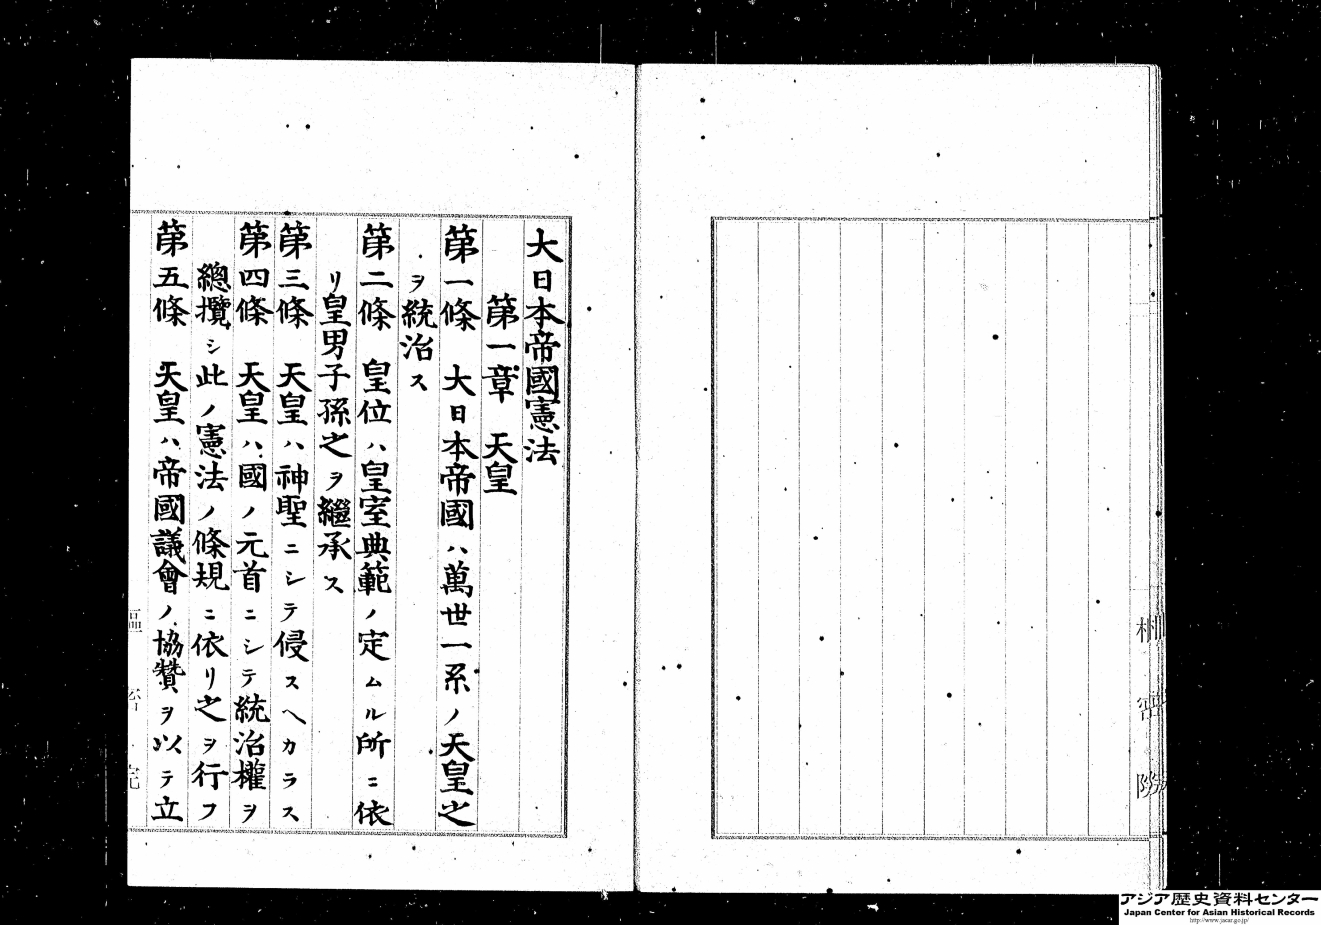 大日本帝國憲法
第一章 天皇
第一條 大日本帝國ハ萬世一系ノ天皇之
ヲ統治ス
第二條 皇位ハ皇室典範ノ定ムル所ニ依
リ皇男子孫之ヲ繼承ス
第三條 天皇ハ神聖ニシテ侵スヘカラス
第四條 天皇ハ國ノ元首ニシテ統治權ヲ
總攬シ此ノ憲法ノ條規ニ依リ之ヲ行フ
第五條 天皇ハ帝國議會ノ協贊ヲ以テ立
アジア歴史資料センター
Japan Center for Asian Historical Records
http://www.jacar.go.jp/